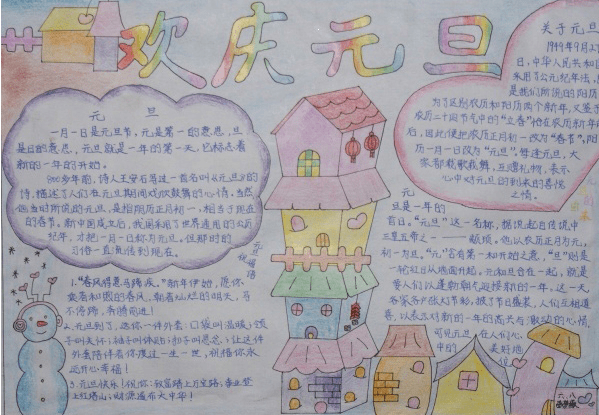 欢庆元旦
元 旦
一月一日是元旦节,元是第一的意思,旦
是日的意思,元旦就是一年的第一天,它标志着
新的一年的开始。
900多年前,诗人王安石写过一首名叫《元旦》的
诗,描述了人们在元旦期间欢欣鼓舞的心情,当然
他当时所说的元旦,是指阴历正月初一,相当于现在
的春节。新中国成立后,我国采用了世界通用的公历
纪年,才把一月一日称为元旦。但那时的
习俗一直流传到现在。
关于元旦
1949年9月27
日,中华人民共和国
采用了公元纪年法,
是我们所说的阳历
为了区别农历和阳历两个新年,又鉴于
农历二十四节气中的“立春”恰在农历新年前
后,因此便把农历正月初一改为“春节”,阳
历一月一日改为“元旦”。每逢元旦,大
家都载歌载舞,互赠礼物,表示
心中对元旦的到来的喜悦
之情。
元旦祝福语
1.“春风得意马蹄疾。”新年伊始,愿你
乘着和煦的春风,朝着灿烂的明天,马
不停蹄,奔腾前进!
2.元旦到了,送你一件外套:口袋叫温暖;领
子叫关怀;袖子叫体贴;扣子叫思念;让这件
外套陪伴着你度过一生一世,祝福你永
远开心幸福!
3.元旦快乐!祝你:致富踏上万宝路;事业登
上红塔山;财源遍布大中华!
元
旦是一年的
首日。“元旦”这一名称,据说起自传说中
三皇五帝之一——颛顼,他以农历正月为元,
初一为旦。“元”含有第一和开始之意,“旦”则是
一轮红日从地面升起,元和旦合在一起,就是
要人们以蓬勃朝气迎接新的一年。这一天
家家各户做大节彩,披了节日盛装,人们互相道
喜,以表示对新的一年的高兴与激动的心情,
可见元旦在人们心
中的美好地
位。
六.八